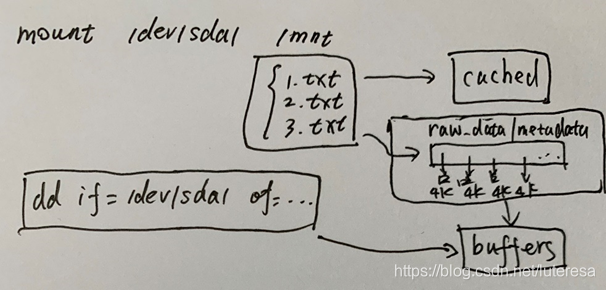 mount /dev/sda1 /mnt
1.txt
2.txt
3.txt
cached
raw_data/metadata
...
4K 4K 4K 4K
dd if=/dev/sda1 of=...
buffers
https://blog.csdn.net/luteresa